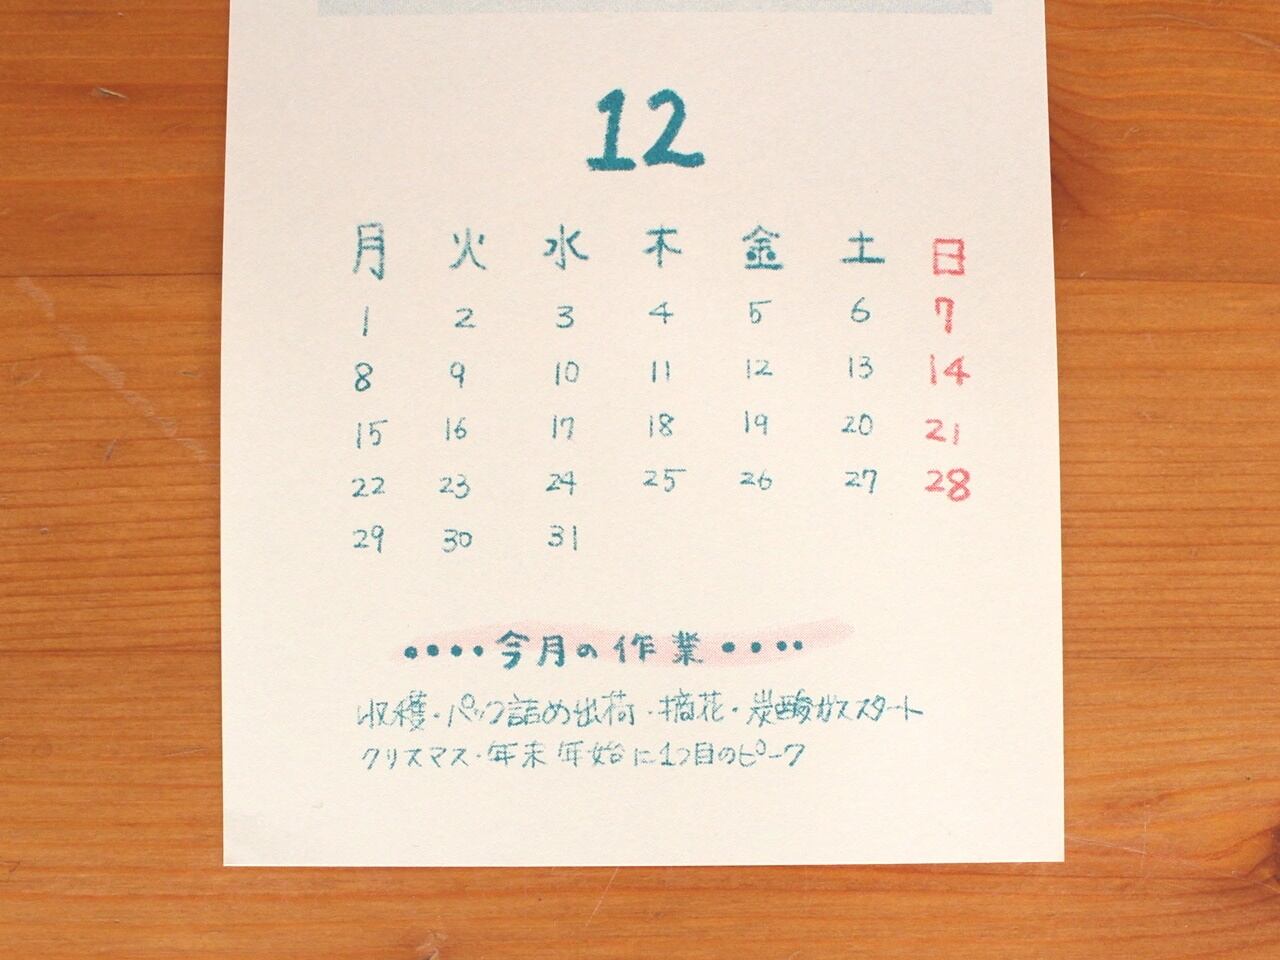 12
月 火 水 木 金 土 日
1 2 3 4 5 6 7
8 9 10 11 12 13 14
15 16 17 18 19 20 21
22 23 24 25 26 27 28
29 30 31
••••今月の作業••••
収穫・パック詰め出荷・摘花・炭酸ガススタート
クリスマス・年末年始に1つ目のピーク